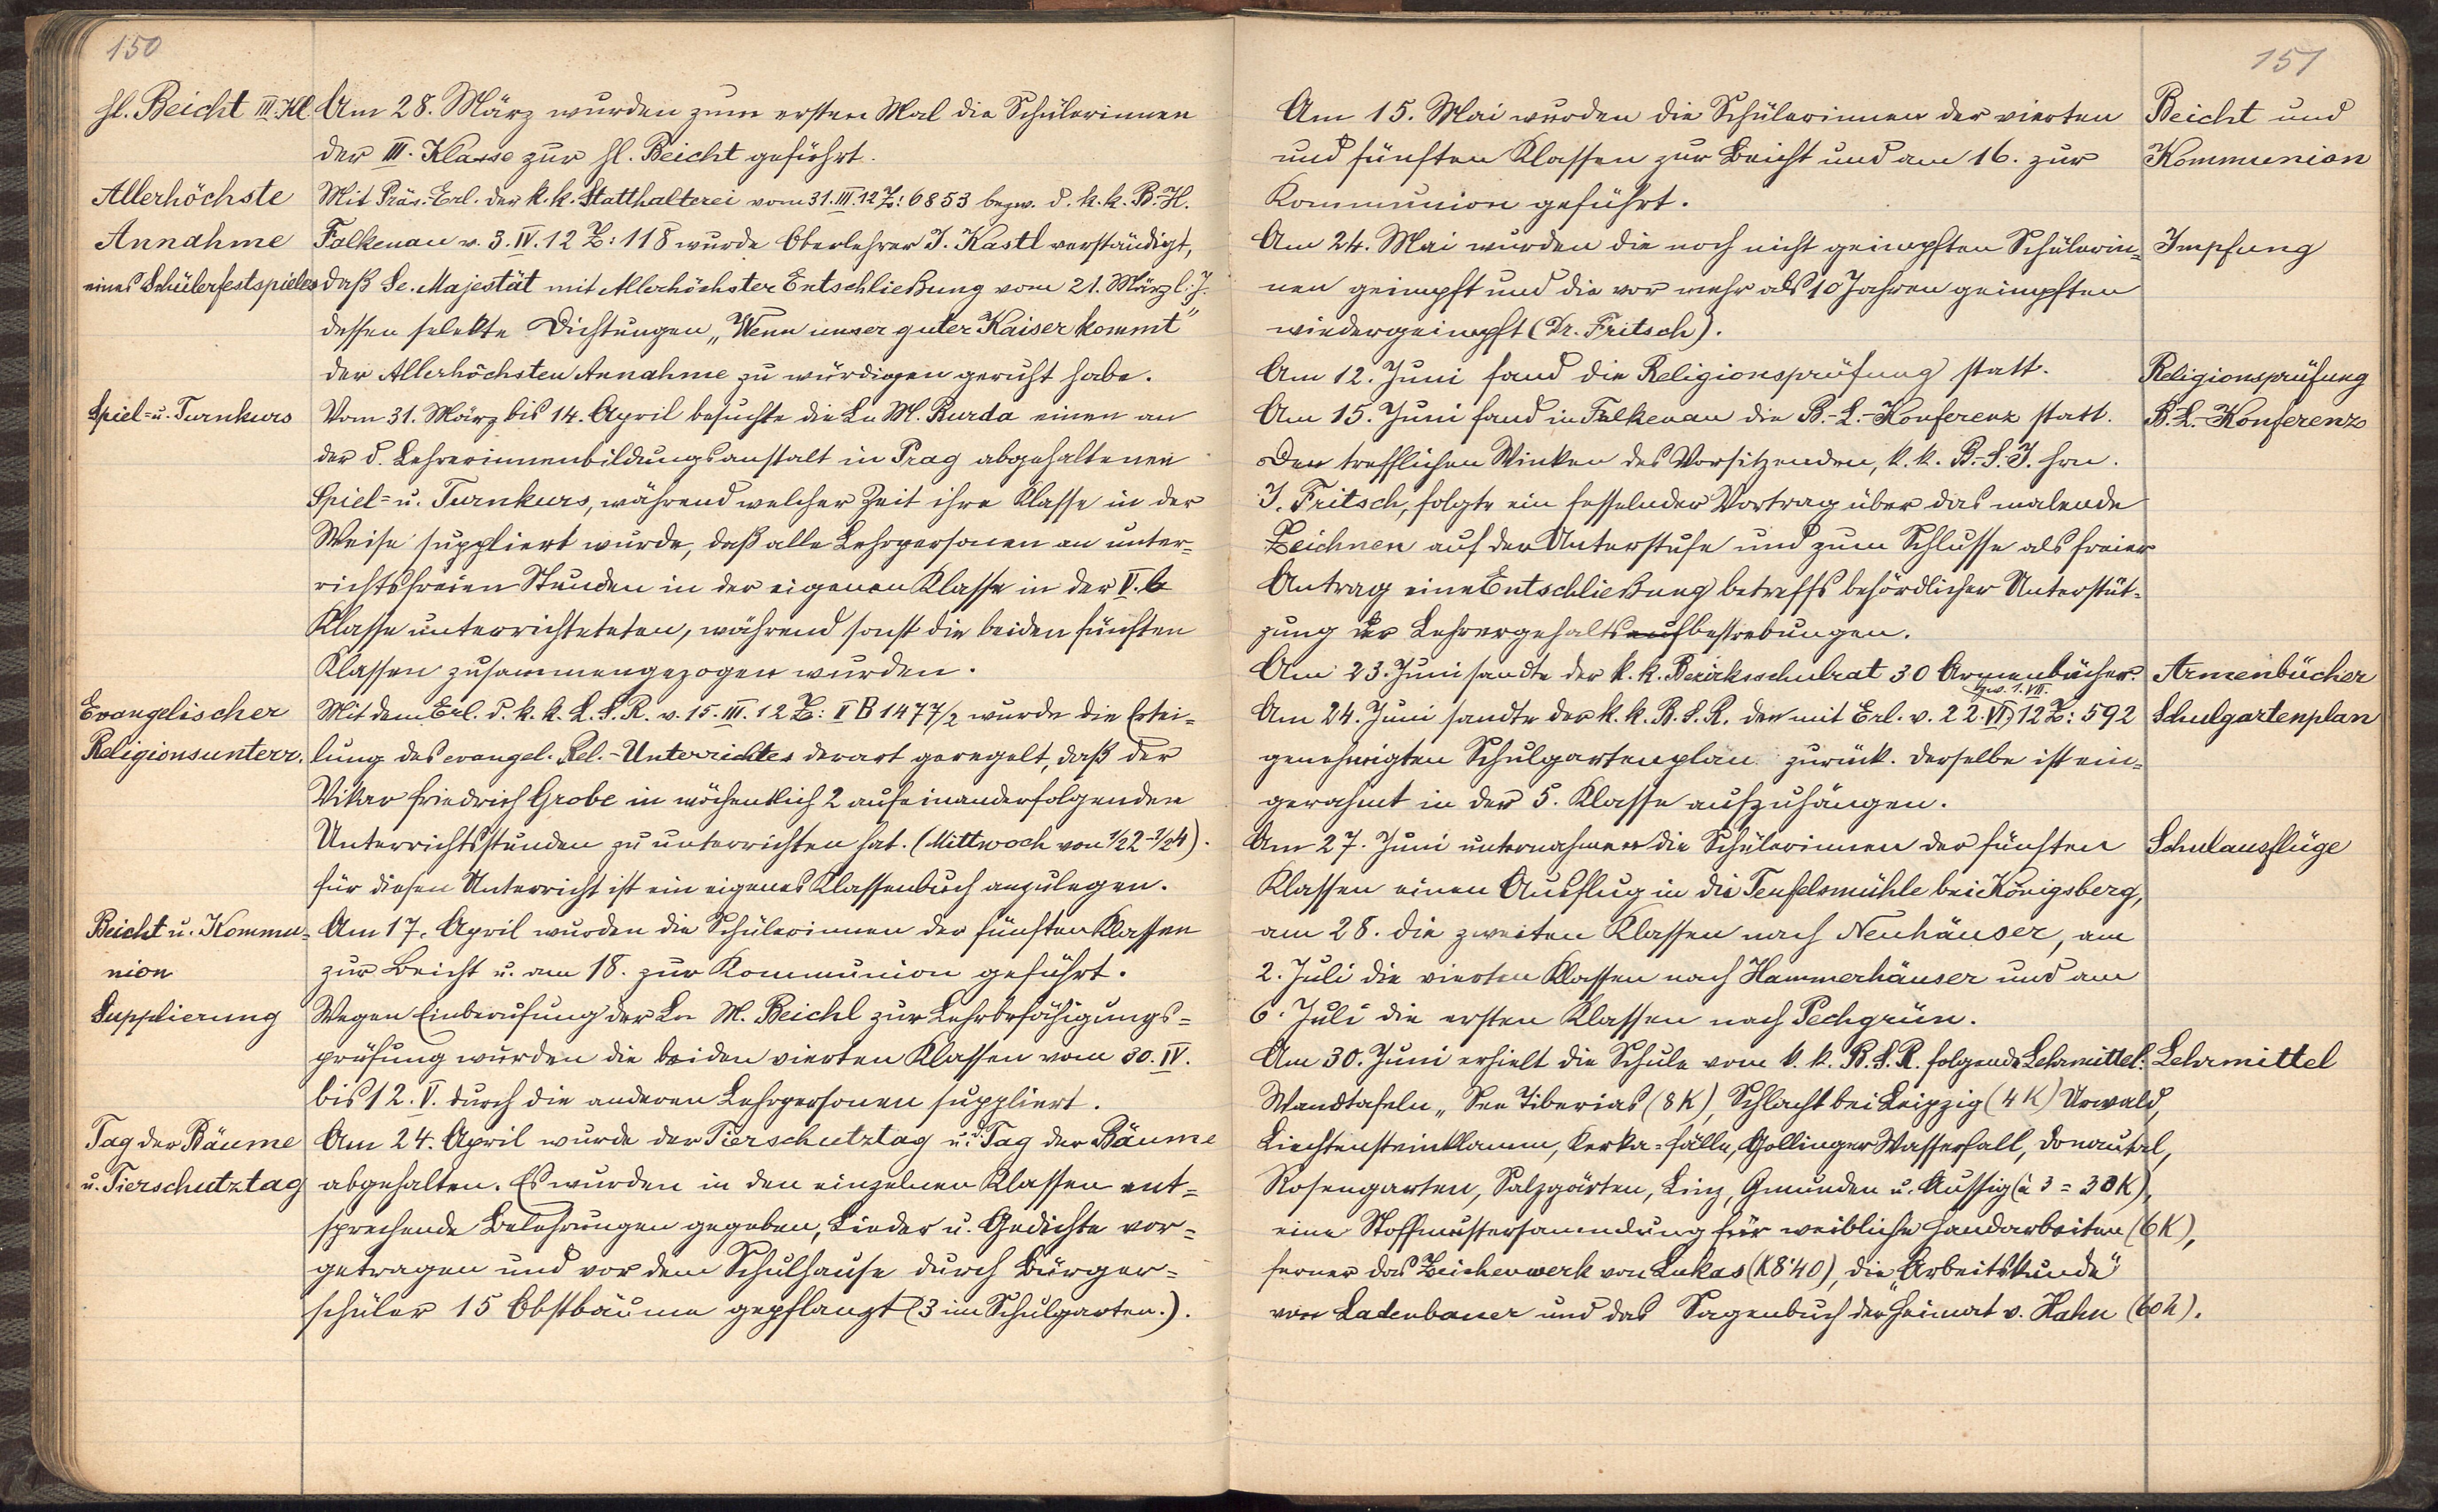 150
hl. Beicht III. Kl. Am 28. März wurden zum ersten Mal die Schülerinnen
der III. Klasse zur hl. Beicht geführt.
Allerhöchste Mit Präs.-Erl. der k. k. Statthalterei vom 31. III. 12 Z: 6853 bezw. d. k. k. B.-H.
Annahme Falkenau v. 3. IV. 12 Z: 118 wurde Oberlehrer J. Kastl verständigt,
eines Schülerfestspieles daß Se. Majestät mit Allerhöchster Entschließung vom 21. März l. J.
dessen Dichtungen „Wenn unser guter Kaiser kommt"
der Allerhöchsten Annahme zu würdigen geruht habe.
Spiel- u. Turnkurs Vom 31. März bis 14. April besuchte die Ln M. Burda einen an
der d. Lehrerinnenbildungsanstalt in Prag abgehaltenen
Spiel- u. Turnkurs, während welcher Zeit ihre Klasse in der
Weise suppliert wurde, daß alle Lehrpersonen an unter-
richtsfreien Stunden in der eigenen Klasse in der V. b
Klasse unterrichteten, während sonst die beiden fünften
Klassen zusammengezogen wurden.
Evangelischer Mit dem Erl. d. k. k. L. S. R. v. 15. III. 12 Z: II B 1477/2 wurde die Ertei-
Religionsunterr. lung des evangel. Rel.-Unterrichtes derart geregelt, daß der
Vikar Friedrich Grobe in wöchentlich 2 aufeinanderfolgenden
Unterrichtsstunden zu unterrichten hat. (Mittwoch von 1/2 2-1/2 4).
Für diesen Unterricht ist ein eigenes Klassenbuch anzulegen.
Beicht u. Kommu- Am 17. April wurden die Schülerinnen der fünften Klassen
nion zur Beicht u. am 18. zur Kommunion geführt.
Supplierung Wegen Einberufung der Ln M. Beichl zur Lehrbefähigungs-
prüfung wurden die beiden vierten Klassen vom 30. IV.
bis 12. V. durch die anderen Lehrpersonen suppliert.
Tag der Bäume Am 24. April wurde der Tierschutztag u. Tag der Bäume
u. Tierschutztag abgehalten. Es wurden in den einzelnen Klassen ent-
sprechende Belehrungen gegeben, Lieder u. Gedichte vor-
getragen und vor dem Schulhause durch Bürger-
schüler 15 Obstbäume gepflanzt (3 im Schulgarten.).
151
Am 15. Mai wurden die Schülerinnen der vierten Beicht und
und fünften Klassen zur Beicht und am 16. zur Kommunion
Kommunion geführt.
Am 24. Mai wurden die noch nicht geimpften Schülerin- Impfung
nen geimpft und die vor mehr als 10 Jahren geimpften
wiedergeimpft (Dr. Fritsch).
Am 12. Juni fand die Religionsprüfung statt. Religionsprüfung
Am 15. Juni fand in Falkenau die B.-L.-Konferenz statt. B. L.-Konferenz
Den trefflichen Winken des Vorsitzenden, k. k. B.-S. I. Hrn.
J. Fritsch, folgte ein fesselnder Vortrag über das malende
Zeichnen auf der Unterstufe und zum Schlusse als freier
Antrag eine Entschließung betreffs behördlicher Unterstüt-
zung der Lehrergehaltsaufbestrebungen.
Am 23. Juni sandte der k. k. Bezirksschulrat 30 Armenbücher. Armenbücher
bzw. 1. VII.
Am 24. Juni sandte der k. k. B. S. R. den mit Erl. v. 22. VI. 12 Z: 592 Schulgartenplan
genehmigten Schulgartenplan zurück. Derselbe ist ein-
gerahmt in der 5. Klasse aufzuhängen.
Am 27. Juni unternahmen die Schülerinnen der fünften Schulausflüge
Klassen einen Ausflug in die Teufelsmühle bei Königsberg,
am 28. die zweiten Klassen nach Neuhäuser, am
2. Juli die vierten Klassen nach Hammerhäuser und am
6. Juli die ersten Klassen nach Pechgrün.
Am 30. Juni erhielt die Schule vom k. k. B. S. R. folgende Lehrmittel: Lehrmittel
Wandtafeln „See Tiberias (8 K), Schlacht bei Leipzig (4 K) Urwald,
Liechtensteinklamm, Kerka-Fälle, Gollinger Wasserfall, Donautal,
Rosengarten, Salzgärten, Linz, Gmunden u. Aussig (à 3 = 30 K),
eine Stoffmustersammlung für weibliche Handarbeiten (6 K),
ferner das Zeichenwerk von Lukas (K 8·40), die „Arbeitskunde"
von Ladenbauer und das Sagenbuch der Heimat v. Hahn (60 h).